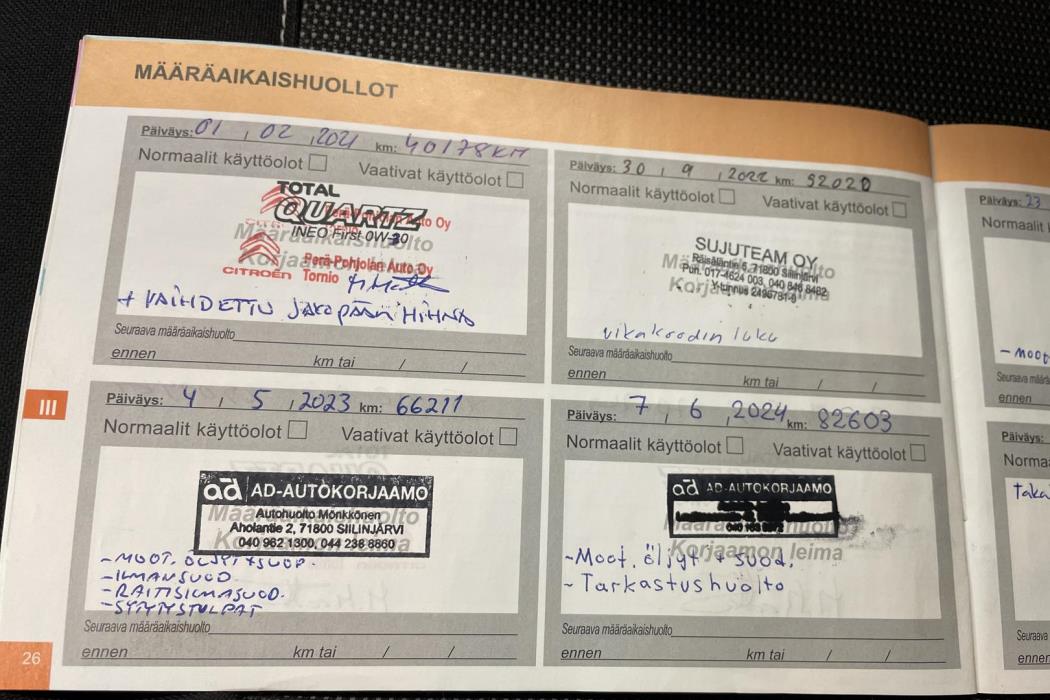 MÄÄRÄAIKAISHUOLLOT
Päiväys: 01 , 02 , 2021 km: 40178KM
Normaalit käyttöolot Vaativat käyttöolot
TOTAL
QUARTZ
INEO First 0W-30
Määräaikaishuolto
Perä-Pohjolan Auto Oy
CITROËN Tornio
+ VAIHDETTU JAKOPÄÄN HIHNA
Seuraava määräaikaishuolto
ennen km tai / /
Päiväys: 30 , 9 , 2022 km: 52020
Normaalit käyttöolot Vaativat käyttöolot
SUJUTEAM OY
Räisäläntie 5, 71800 Siilinjärvi
Puh. 017-4624 003, 040 846 8482
Y-tunnus 2496781-9
vikakoodin luku
Seuraava määräaikaishuolto
ennen km tai / /
III
Päiväys: 4 , 5 , 2023 km: 66211
Normaalit käyttöolot Vaativat käyttöolot
ad AD-AUTOKORJAAMO
Autohuolto Mönkkönen
Aholantie 2, 71800 SIILINJÄRVI
040 962 1300, 044 238 6860
- MOOT. ÖLJYT + SUOD.
- ILMANSUOD.
- RAITISILMASUOD.
- SYTYTYSTULPAT
Seuraava määräaikaishuolto
ennen km tai / /
Päiväys: 7 , 6 , 2024 km: 82603
Normaalit käyttöolot Vaativat käyttöolot
ad AD-AUTOKORJAAMO
Korjaamon leima
- Moot. öljyt + suod.
- Tarkastushuolto
Seuraava määräaikaishuolto
ennen km tai / /
26
Päiväys: 23
Normaalit
- MOOT
Seuraava
ennen
Päiväys:
Norma
taka
Seuraava
ennen